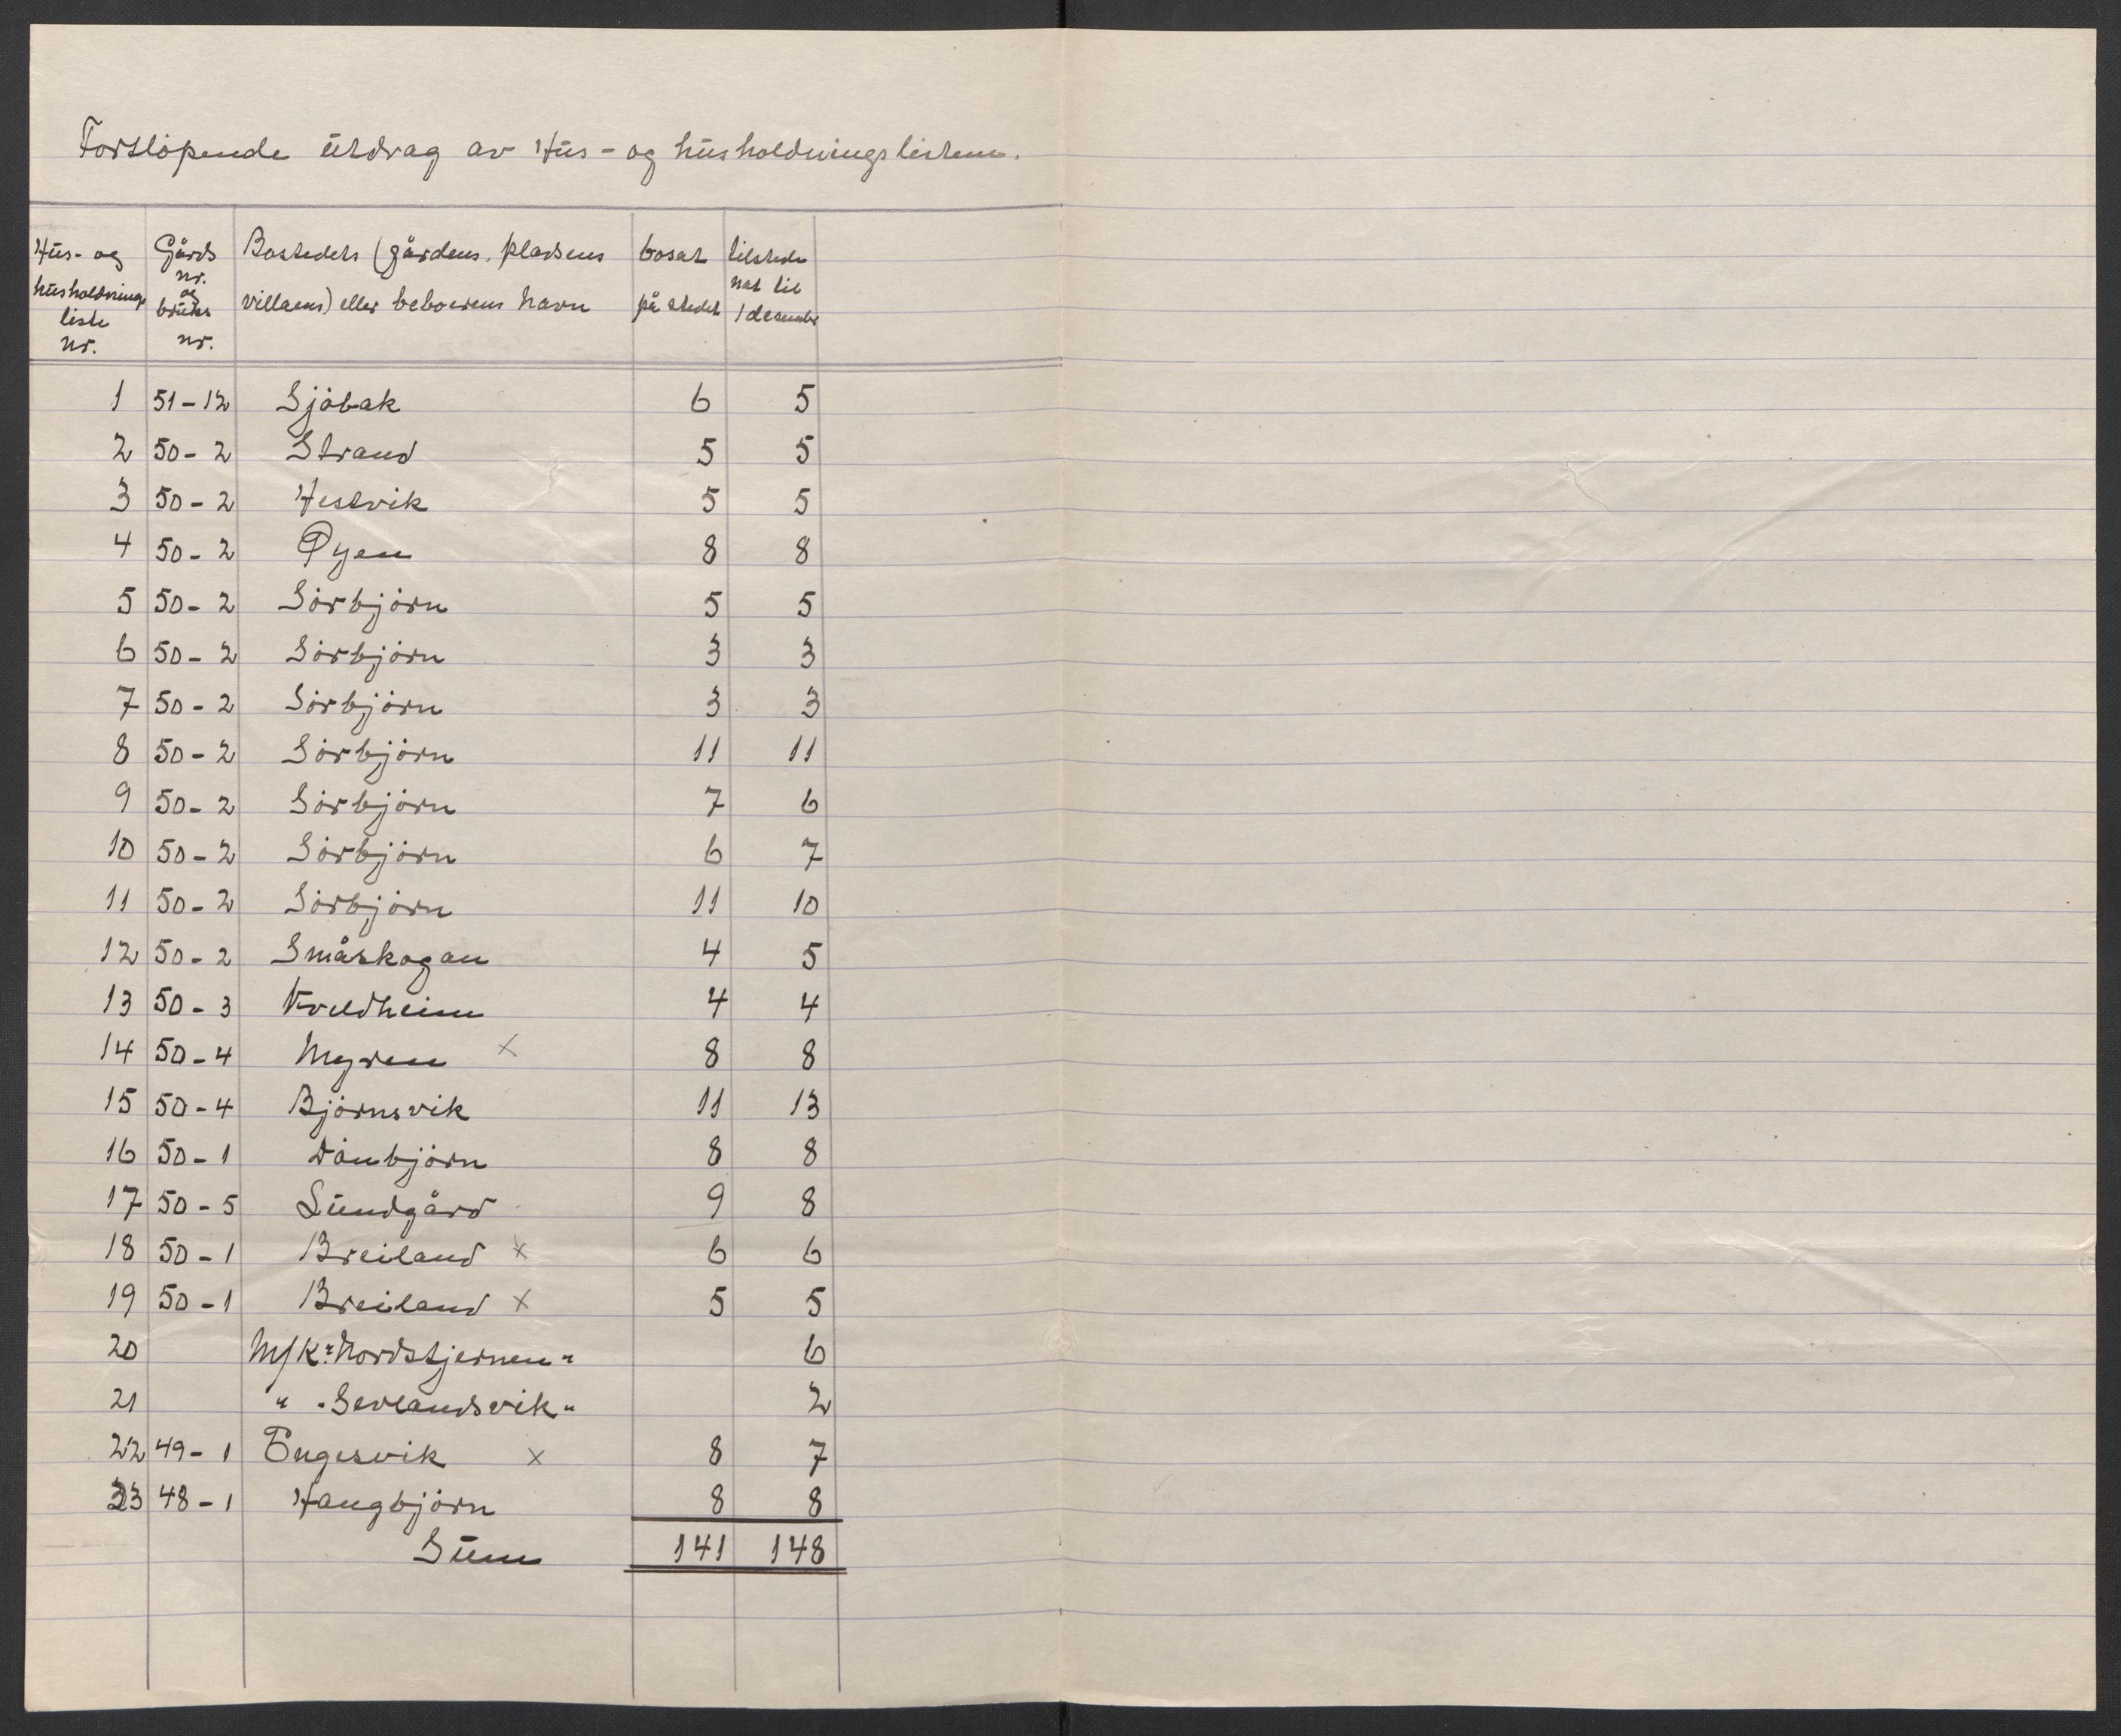 Fortløpende utdrag av Hus- og husholdningslisten.
Hus- og husholdnings liste nr. | Gårds nr. og bruks nr. | Bostedets (gårdens, pladsens villaens) eller beboerens navn | bosat på stedet | tilstede nat til 1 desember
1 51-12 Sjöbak 6 5
2 50-2 Strand 5 5
3 50-2 Hestvik 5 5
4 50-2 Øyen 8 8
5 50-2 Sörbjörn 5 5
6 50-2 Sörbjörn 3 3
7 50-2 Sörbjörn 3 3
8 50-2 Sörbjörn 11 11
9 50-2 Sörbjörn 7 6
10 50-2 Sörbjörn 6 7
11 50-2 Sörbjörn 11 10
12 50-2 Småskogan 4 5
13 50-3 Kveldheim 4 4
14 50-4 Myren x 8 8
15 50-4 Björnsvik 11 13
16 50-1 8 8
17 50-5 Lundgård 9 8
18 50-1 Breiland x 6 6
19 50-1 Breiland x 5 5
20 M/K "Nordstjernen" 6
21 " "Sevlandsvik" 2
22 49-1 Engesvik x 8 7
23 48-1 Haugbjörn 8 8
Sum 141 148